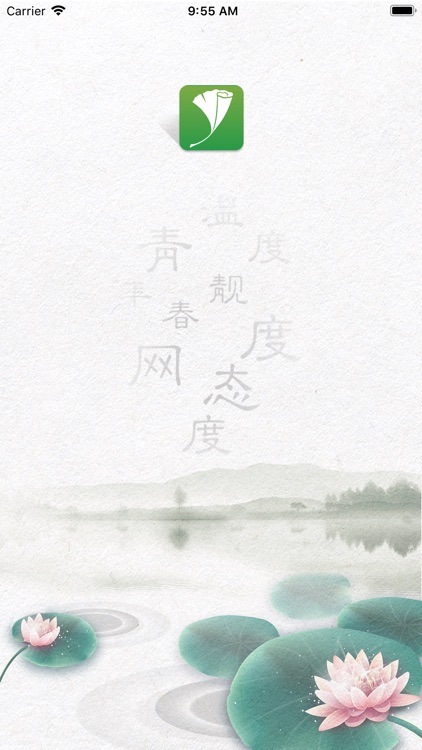 Carrier 9:55 AM
温
青 度
靓
春
度
网
态
度